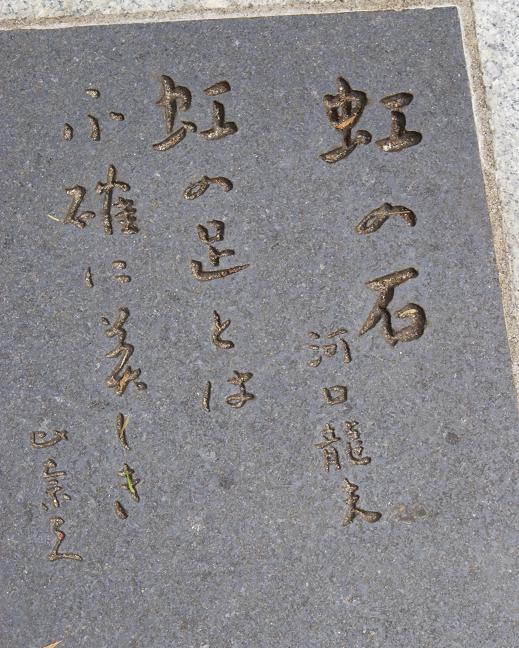 虹の石
河口龍夫
虹の足とは
不確に美しき
比奈夫